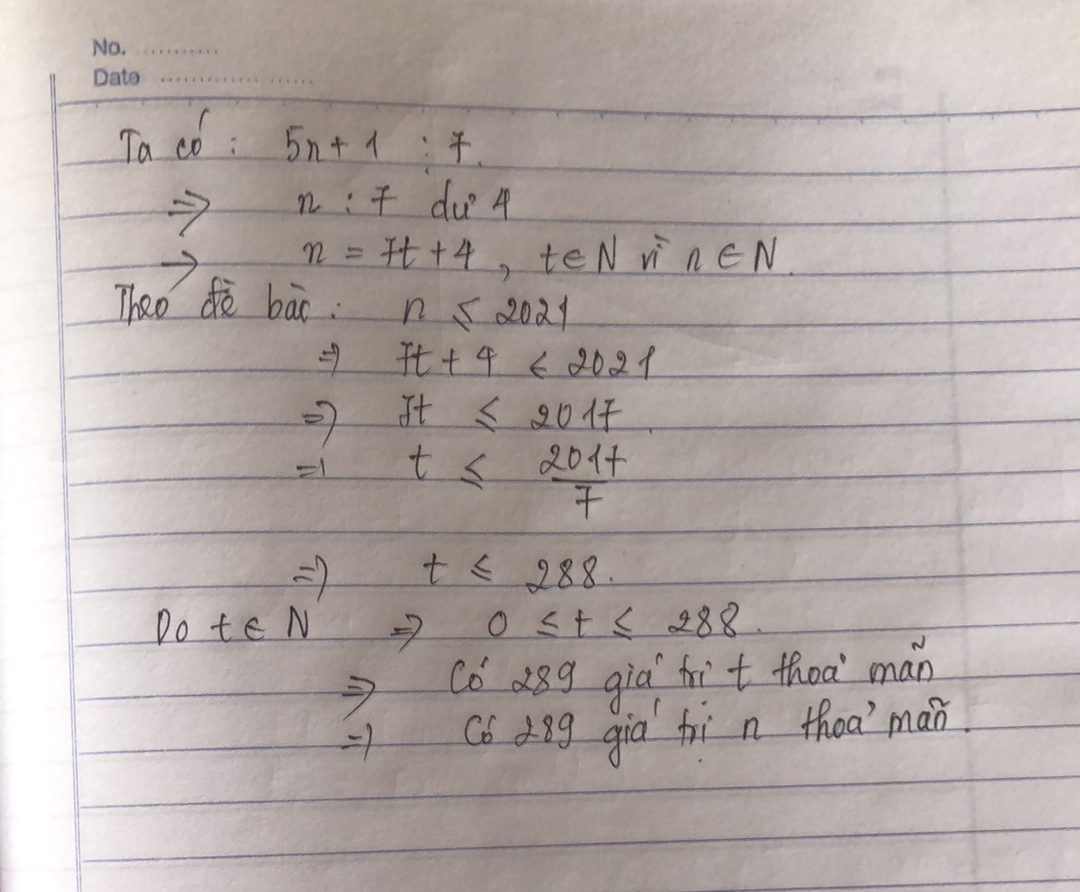 No. ............
Date ......................
Ta có : 5n + 1 ⋮ 7.
⇒ n : 7 dư 4
⇒ n = 7t + 4 , t ∈ N vì n ∈ N.
Theo đề bài : n ≤ 2021
⇒ 7t + 4 ≤ 2021
⇒ 7t ≤ 2017.
⇒ t ≤ 2017/7
⇒ t ≤ 288.
Do t ∈ N ⇒ 0 ≤ t ≤ 288.
⇒ Có 289 giá trị t thoả mãn
⇒ Có 289 giá trị n thoả mãn.